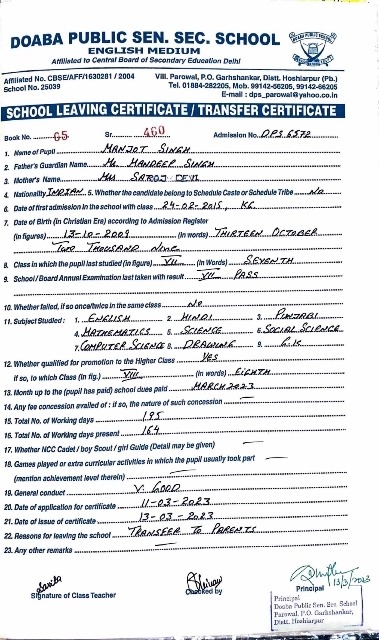 DOABA PUBLIC SEN. SEC. SCHOOL
ENGLISH MEDIUM
Affiliated to Central Board of Secondary Education Delhi
Affiliated No. CBSE/AFF/1630281 / 2004
Vill. Parowal, P.O. Garhshankar, Distt. Hoshiarpur (Pb.)
School No. 25039
Tel. 01884-282205, Mob. 99142-66205, 99142-66205
E-mail : dps_parowal@yahoo.co.in
SCHOOL LEAVING CERTIFICATE / TRANSFER CERTIFICATE
Book No. 65 Sr. 460 Admission No. DPS 6572
1. Name of Pupil MANJOT SINGH
2. Father's Guardian Name Mr. MANDEEP SINGH
3. Mother's Name Mrs SAROJ DEVI
4. Nationality INDIAN 5. Whether the candidate belong to Schedule Caste or Schedule Tribe NO
6. Date of first admission in the school with class 24-02-2015, KG
7. Date of Birth (in Christian Era) according to Admission Register
(in figures) 13-10-2009 (in words) THIRTEEN OCTOBER
TWO THOUSAND NINE
8. Class in which the pupil last studied (in figure) VII (in Words) SEVENTH
9. School / Board Annual Examination last taken with result VII PASS
10. Whether failed, if so once/twice in the same class NO
11. Subject Studied : 1. ENGLISH 2. HINDI 3. PUNJABI
4. MATHEMATICS 5. SCIENCE 6. SOCIAL SCIENCE
7. COMPUTER SCIENCE 8. DRAWING 9. G.K
12. Whether qualified for promotion to the Higher Class YES
if so, to which Class (in fig.) VIII (in words) EIGHTH
13. Month up to the (pupil has paid) school dues paid MARCH 2023
14. Any fee concession availed of : if so, the nature of such concession —
15. Total No. of Working days 195
16. Total No. of Working days present 164
17. Whether NCC Cadet / boy Scout / girl Guide (Detail may be given) —
18. Games played or extra curricular activities in which the pupil usually took part —
(mention achievement level therein) —
19. General conduct V. GOOD
20. Date of application for certificate 11-03-2023
21. Date of issue of certificate 13-03-2023
22. Reasons for leaving the school TRANSFER TO PARENTS
23. Any other remarks —
13/3/2023
Signature of Class Teacher Checked by Principal
Principal
Doaba Public Sen. Sec. School
Parowal, P.O. Garhshankar,
Distt. Hoshiarpur